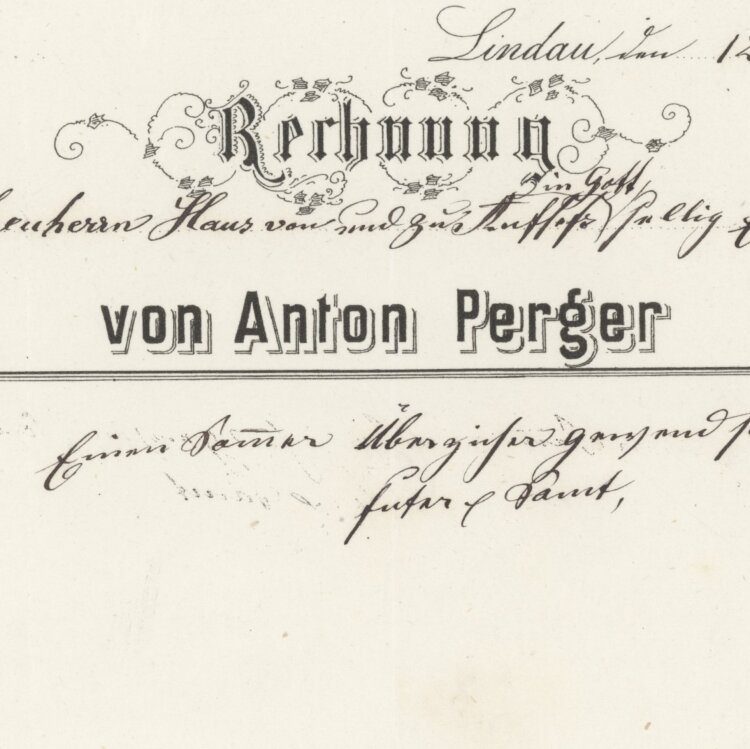 Lindau, den 12
Rechnung
in Gott
Haus von und zu Aufseß sellig
von Anton Perger
Einen Sommer Überzieher gewend
futer & Samt,